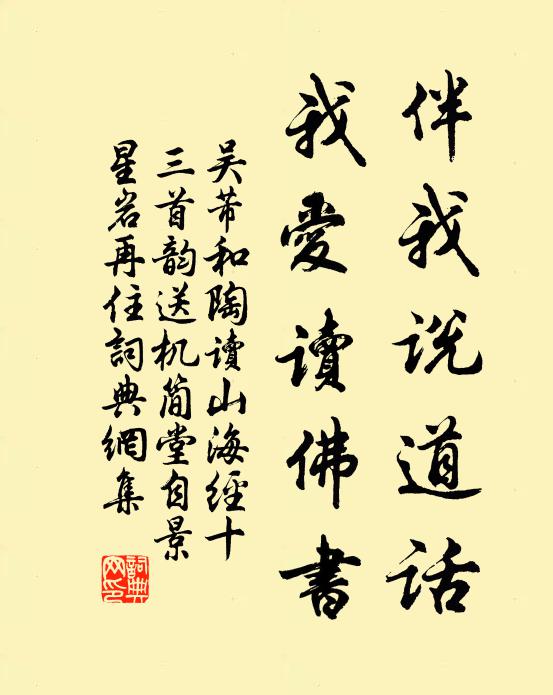 伴我说道话
我爱讀佛書
吴芾和陶讀山海經十
三首韵送机简堂自景
星岩再住詞典網集
詞典网印